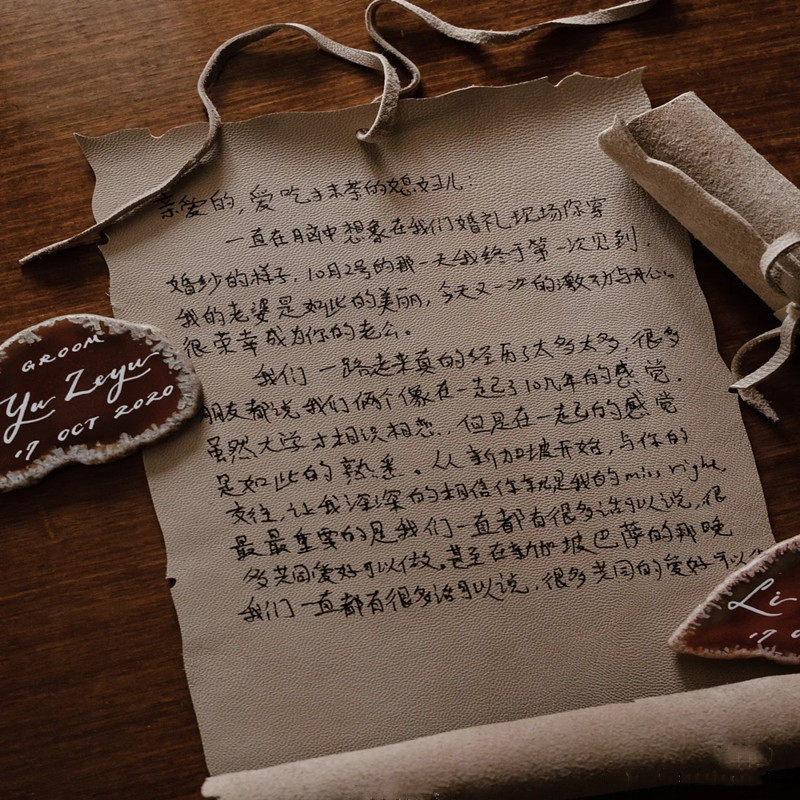 亲爱的,爱吃抹茶的媳妇儿:
一直在脑中想象在我们婚礼现场你穿
婚纱的样子,10月2号的那一天我终于第一次见到,
我的老婆是如此的美丽,今天又一次的激动与开心。
很荣幸成为你的老公。
我们一路走来真的经历了太多太多,很多
朋友都说我们俩个像在一起了10几年的感觉.
虽然大学才相识相恋,但是在一起的感觉
是如此的熟悉。从新加坡开始,与你的
交往,让我深深的相信你就是我的miss right,
最最重要的是我们一直都有很多话可以说,很
多共同爱好可以做。甚至在新加坡巴萨的那晚
我们一直都有很多话可以说,很多共同的爱好可以
GROOM
Yu Zeyu
17 OCT 2020
Li
17 O